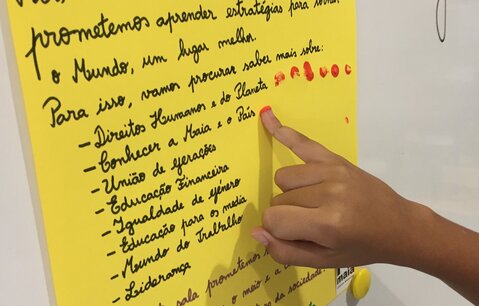 prometemos aprender estratégias para
o Mundo, um lugar melhor.
Para isso, vamos procurar saber mais sobre:
- Direitos Humanos e do Planeta
- Conhecer a Maia e o País
- União de Gerações
- Educação Financeira
- Igualdade de Género
- Educação para os media
- Mundo do Trabalho
- Liderança
sala prometemos
o meio e a
da sociedade.
maia